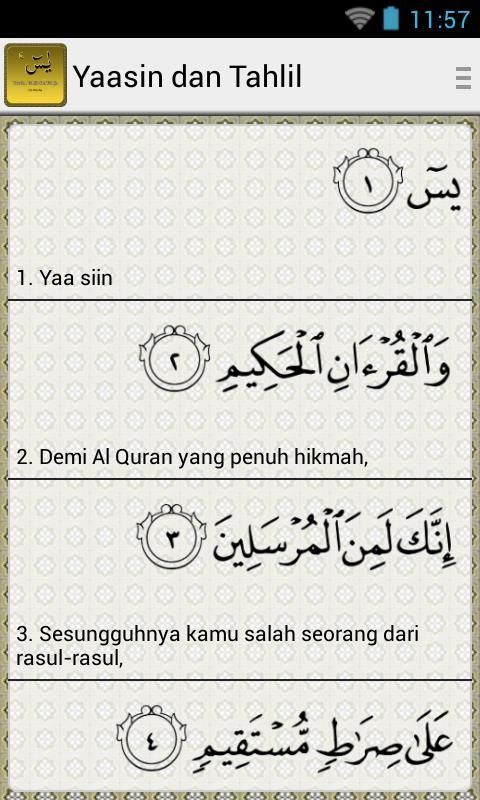 11:57
يسٓ
Yaasin dan Tahlil
يسٓ ١
1. Yaa siin
وَٱلْقُرْءَانِ ٱلْحَكِيمِ ٢
2. Demi Al Quran yang penuh hikmah,
إِنَّكَ لَمِنَ ٱلْمُرْسَلِينَ ٣
3. Sesungguhnya kamu salah seorang dari
rasul-rasul,
عَلَىٰ صِرَٰطٍ مُّسْتَقِيمٍ ٤